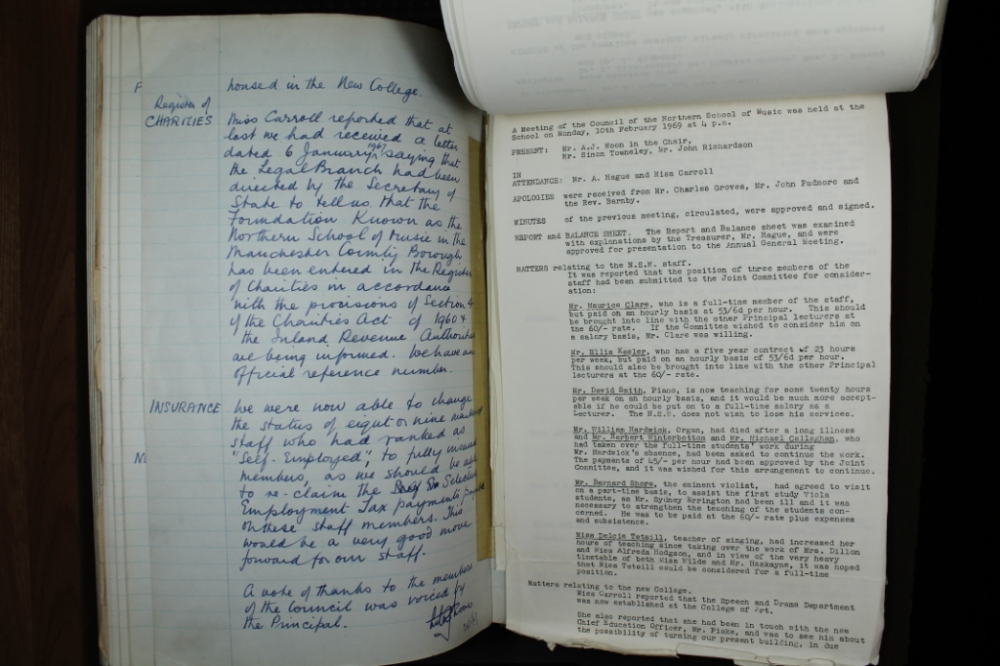 F
housed in the New College.
Register of
CHARITIES
Miss Carroll reported that at
last we had received a letter
dated 6 January 1967, saying that
the Legal Branch had been
directed by the Secretary of
State to tell us that the
Foundation Known as the
Northern School of Music in the
Manchester County Borough
has been entered in the Register
of Charities in accordance
with the provisions of Section 4
of the Charities Act of 1960 &
the Inland Revenue Authorities
are being informed. We have an
official reference number.
INSURANCE
We were now able to change
the status of eight or nine members
staff who had ranked as
"Self-Employed", to fully insured
members, as we should be able
to re-claim the Selective
Employment Tax payments
on these staff members. This
would be a very good move
forward for our staff.
A vote of thanks to the members
of the Council was voiced by
the Principal.
A Meeting of the Council of the Northern School of Music was held at the
School on Monday, 10th February 1969 at 4 p.m.
PRESENT: Mr. A.J. Moon in the Chair,
Mr. Simon Towneley, Mr. John Richardson
IN
ATTENDANCE: Mr. A. Hague and Miss Carroll
APOLOGIES were received from Mr. Charles Groves, Mr. John Padmore and
the Rev. Barnby.
MINUTES of the previous meeting, circulated, were approved and signed.
REPORT and BALANCE SHEET. The Report and Balance sheet was examined
with explanations by the Treasurer, Mr. Hague, and were
approved for presentation to the Annual General Meeting.
MATTERS relating to the N.S.M. staff.
It was reported that the position of three members of the
staff had been submitted to the Joint Committee for consider-
ation:
Mr. Maurice Clare, who is a full-time member of the staff,
but paid on an hourly basis at 53/6d per hour. This should
be brought into line with the other Principal lecturers at
the 60/- rate. If the Committee wished to consider him on
a salary basis, Mr. Clare was willing.
Mr. Ellis Keeler, who has a five year contract of 23 hours
per week, but paid on an hourly basis of 53/6d per hour.
This should also be brought into line with the other Principal
lecturers at the 60/- rate.
Mr. David Smith, Piano, is now teaching for some twenty hours
per week on an hourly basis, and it would be much more accept-
able if he could be put on to a full-time salary as a
Lecturer. The N.S.M. does not wish to lose his services.
Mr. William Hardwick, Organ, had died after a long illness
and Mr. Herbert Winterbottom and Mr. Michael Callaghan, who
had taken over the full-time students' work during
Mr. Hardwick's absence, had been asked to continue the work.
The payments of 45/- per hour had been approved by the Joint
Committee, and it was wished for this arrangement to continue.
Mr. Bernard Shore, the eminent violist, had agreed to visit
on a part-time basis, to assist the first study Viola
students, as Mr. Sydney Errington had been ill and it was
necessary to strengthen the teaching of the students con-
cerned. He was to be paid at the 60/- rate plus expenses
and subsistence.
Miss Delcie Tetsill, teacher of singing, had increased her
hours of teaching since taking over the work of Mrs. Dillon
and Miss Alfreda Hodgson, and in view of the very heavy
timetable of both Miss Wilde and Mr. Haskayne, it was hoped
that Miss Tetsill could be considered for a full-time
position.
Matters relating to the new College.
Miss Carroll reported that the Speech and Drama Department
was now established at the College of Art.
She also reported that she had been in touch with the new
Chief Education Officer, Mr. Fiske, and was to see him about
the possibility of turning our present building, in due